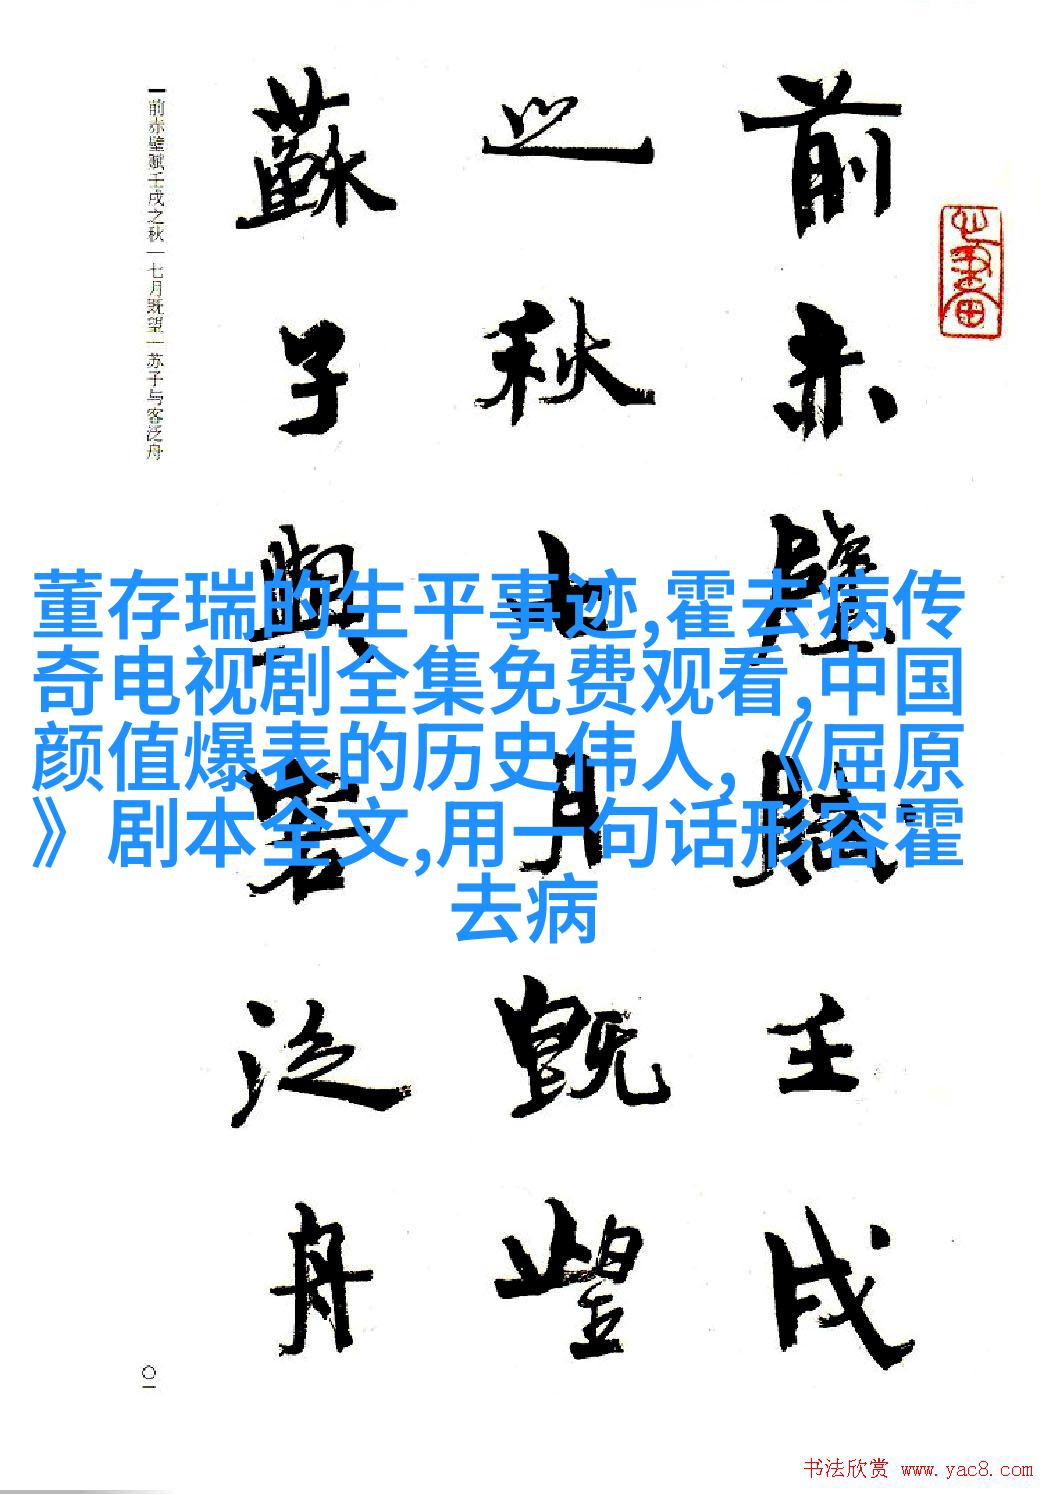 前赤壁赋壬戌
之秋七月既望
蘇子與客泛舟
前赤壁赋壬戌之秋|七月既望|苏子与客泛舟
董存瑞的生平事迹,霍去病传
奇电视剧全集免费观看,中国
颜值爆表的历史伟人,《屈原
》剧本全文,用一句话形容霍
去病
〇一
书法欣赏 www.yac8.com